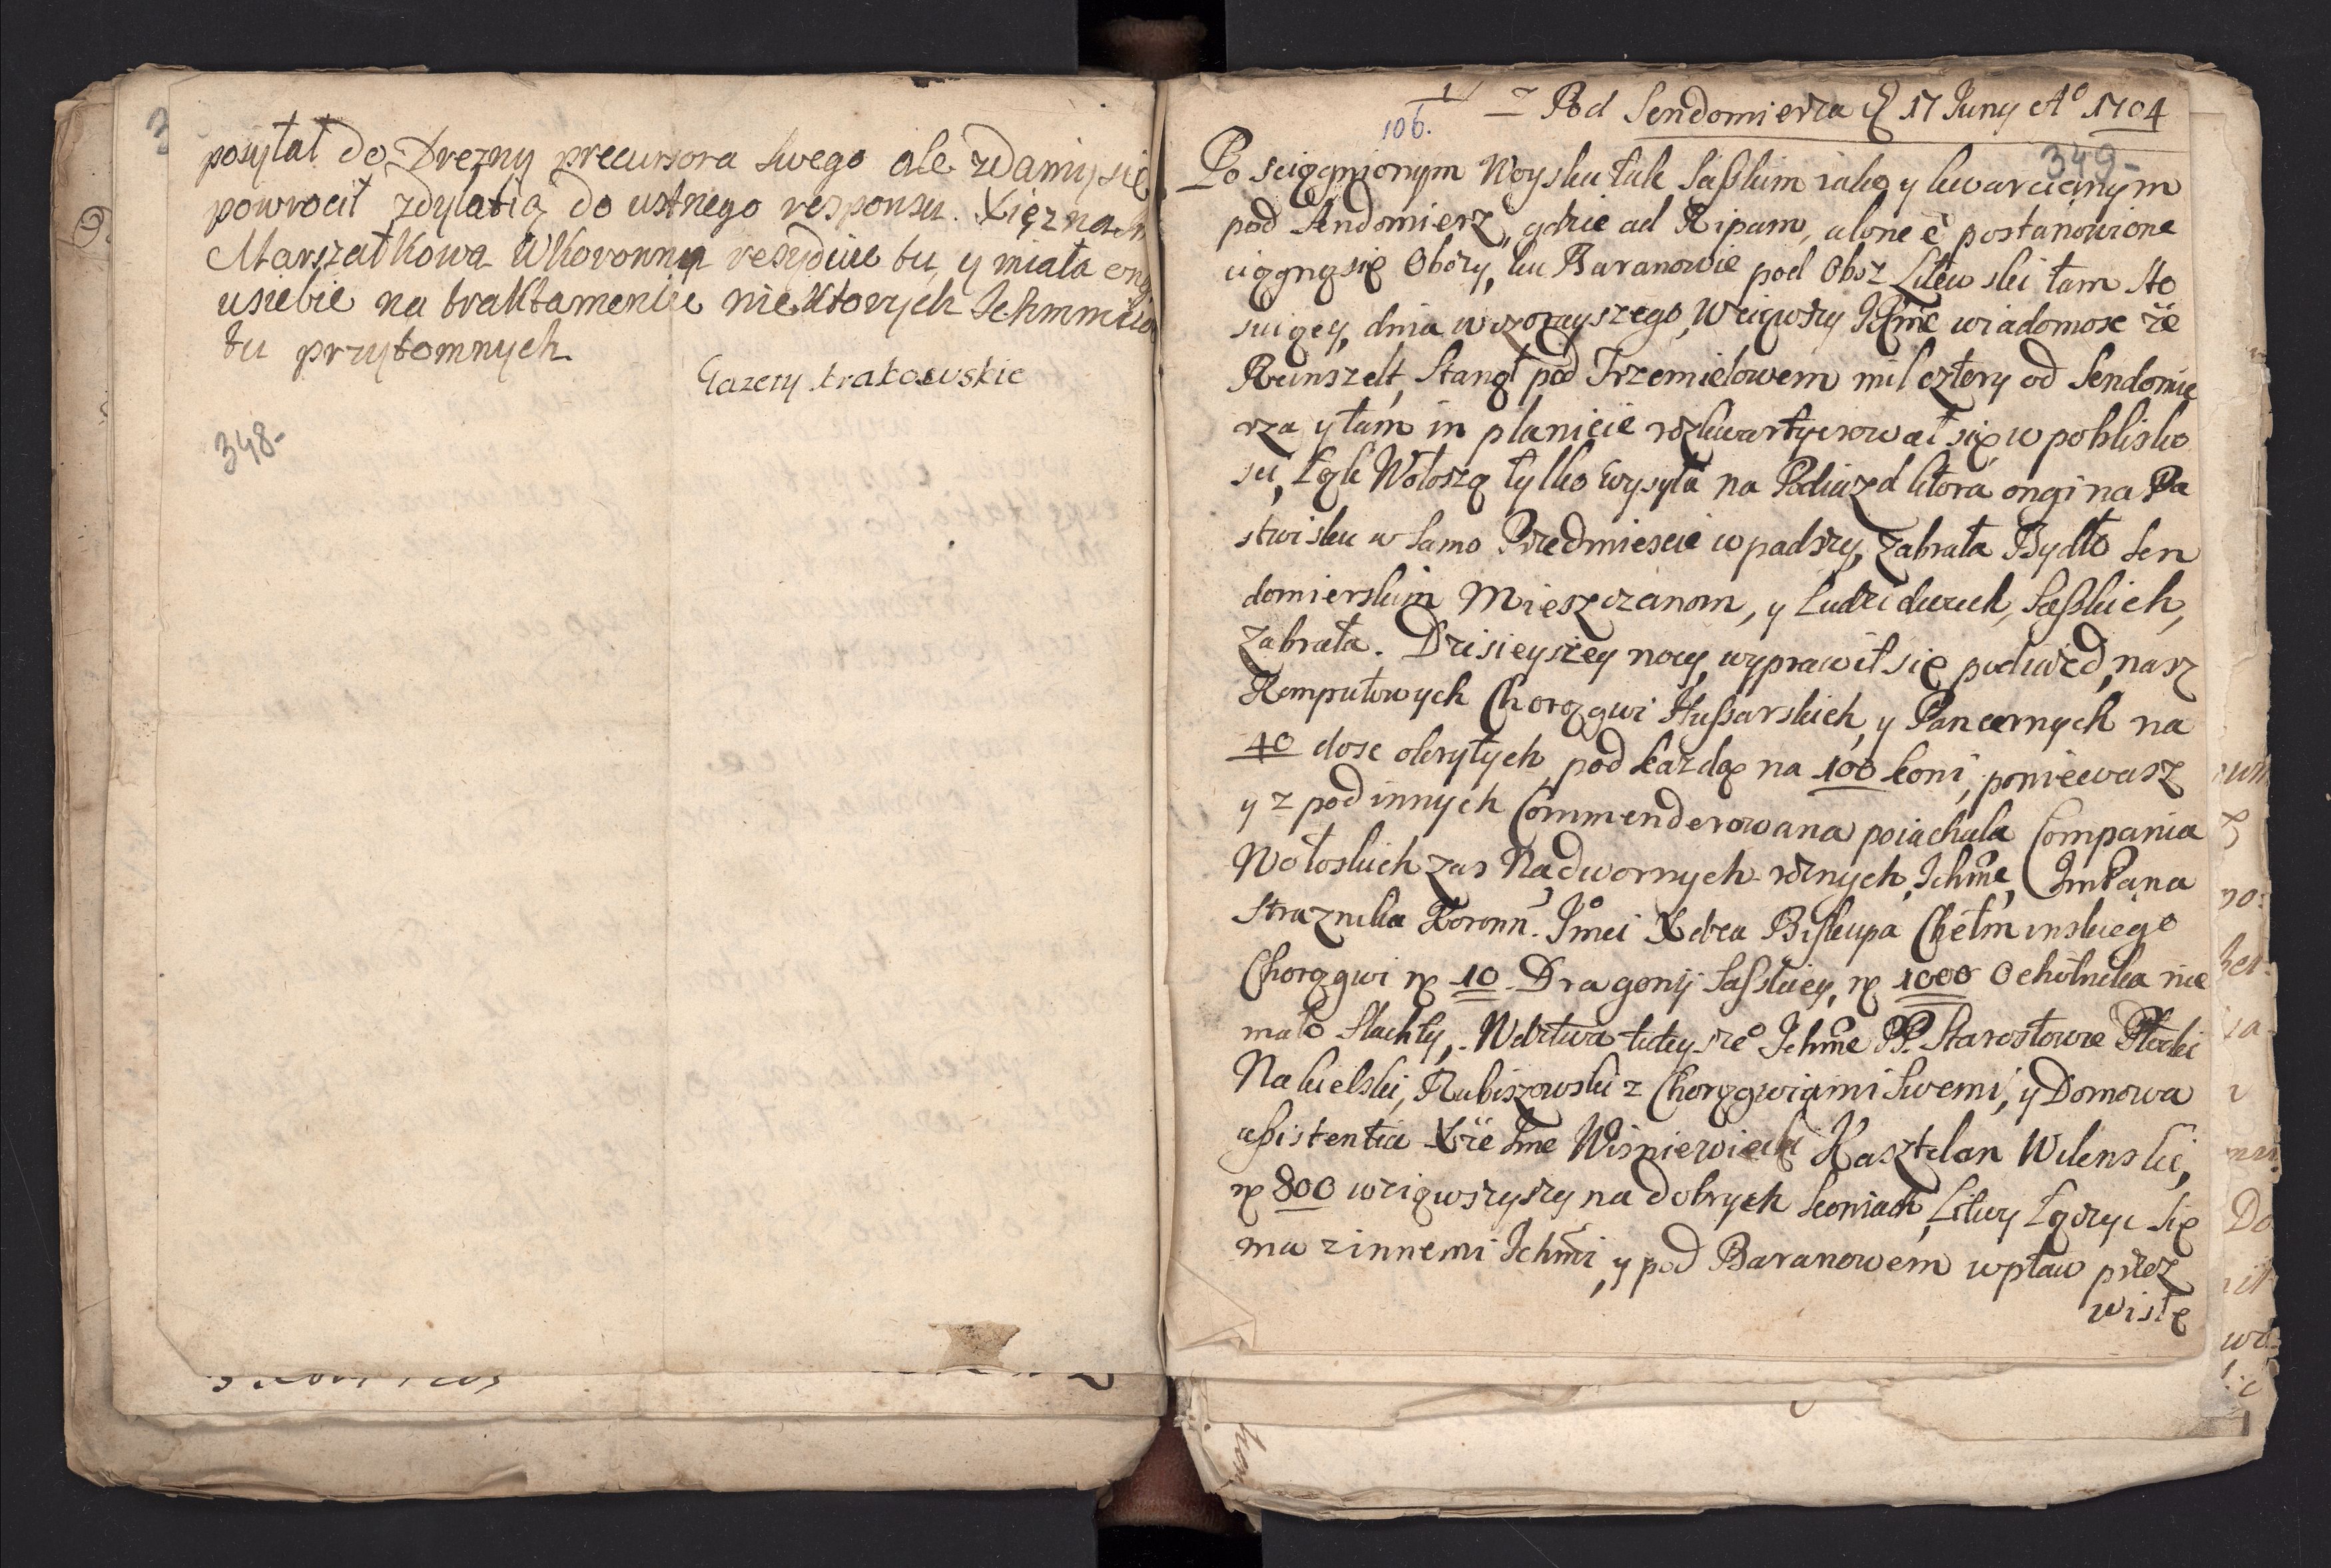 posyłał do Drezny precursora swego ale zdamy się
powrocił zdylatią do ustnego responsu. Xiężna
Marszałkowa WKoronna resyduie tu, y miała
usiebie na traktamencie niektorych Ichmmciow
tu przytomnych.
Gazety krakowskie
348-
1
106.
Pod Sendomierza 17 Juny Ao 1704
349-
Po sciągnionym Woysku tak Saskim iako y kwarcianym
pod Sendomierz, gdzie ad Ripam, alone è postanowione
ciągną się Obozy, ku Baranowie pod Oboz Litewski tam sto
iącey, dnia wczorayszego, Wziąwszy Ichmc wiadomosc że
Reinszelt, Stanął pod Trzemielowem mil cztery od Sendomie
rza y tam in planicie rozkwartyerował się w poblisko
sci, Lęk Wołoszą tylko wysyła na Podiazd ktora ongi na Pa
stwisku w samo Przedmiescie wpadszy, zabrała Bydło Sen
domierskim Mieszczanom, y Ludzi dwuch, Saskich,
zabrała. Dzisieyszey nocy, wyprawił się podiazd, nasz
Komputowych Chorągwi Hussarskich, y Pancernych na
40 dosc okrytych pod każdą na 100 koni, poniewasz
y z pod innych Commenderowana poiachala Compania
Wołoskich zas Nadwornych rożnych Ichmc, ImPana
Straznika Koronn. Jmci Xdza Biskupa Chełminskiego
Chorągwi np 10 Dragonij Saskiey, np 1000 Ochotnika nie
mało Slachty, Wdztwa tutey sze Ichmc PP. Starostowie Płocki
Nakielski, Rubiszowski z Chorągwiami swemi, y Domowa
assistentia Xże Jme Wiśniewiecki Kasztelan Wilenski,
np 800 wziąwszyszy na dobrych koniach, Litwy Łączyc się
ma z innemi Ichmci, y pod Baranowem wpław przez
wisłę